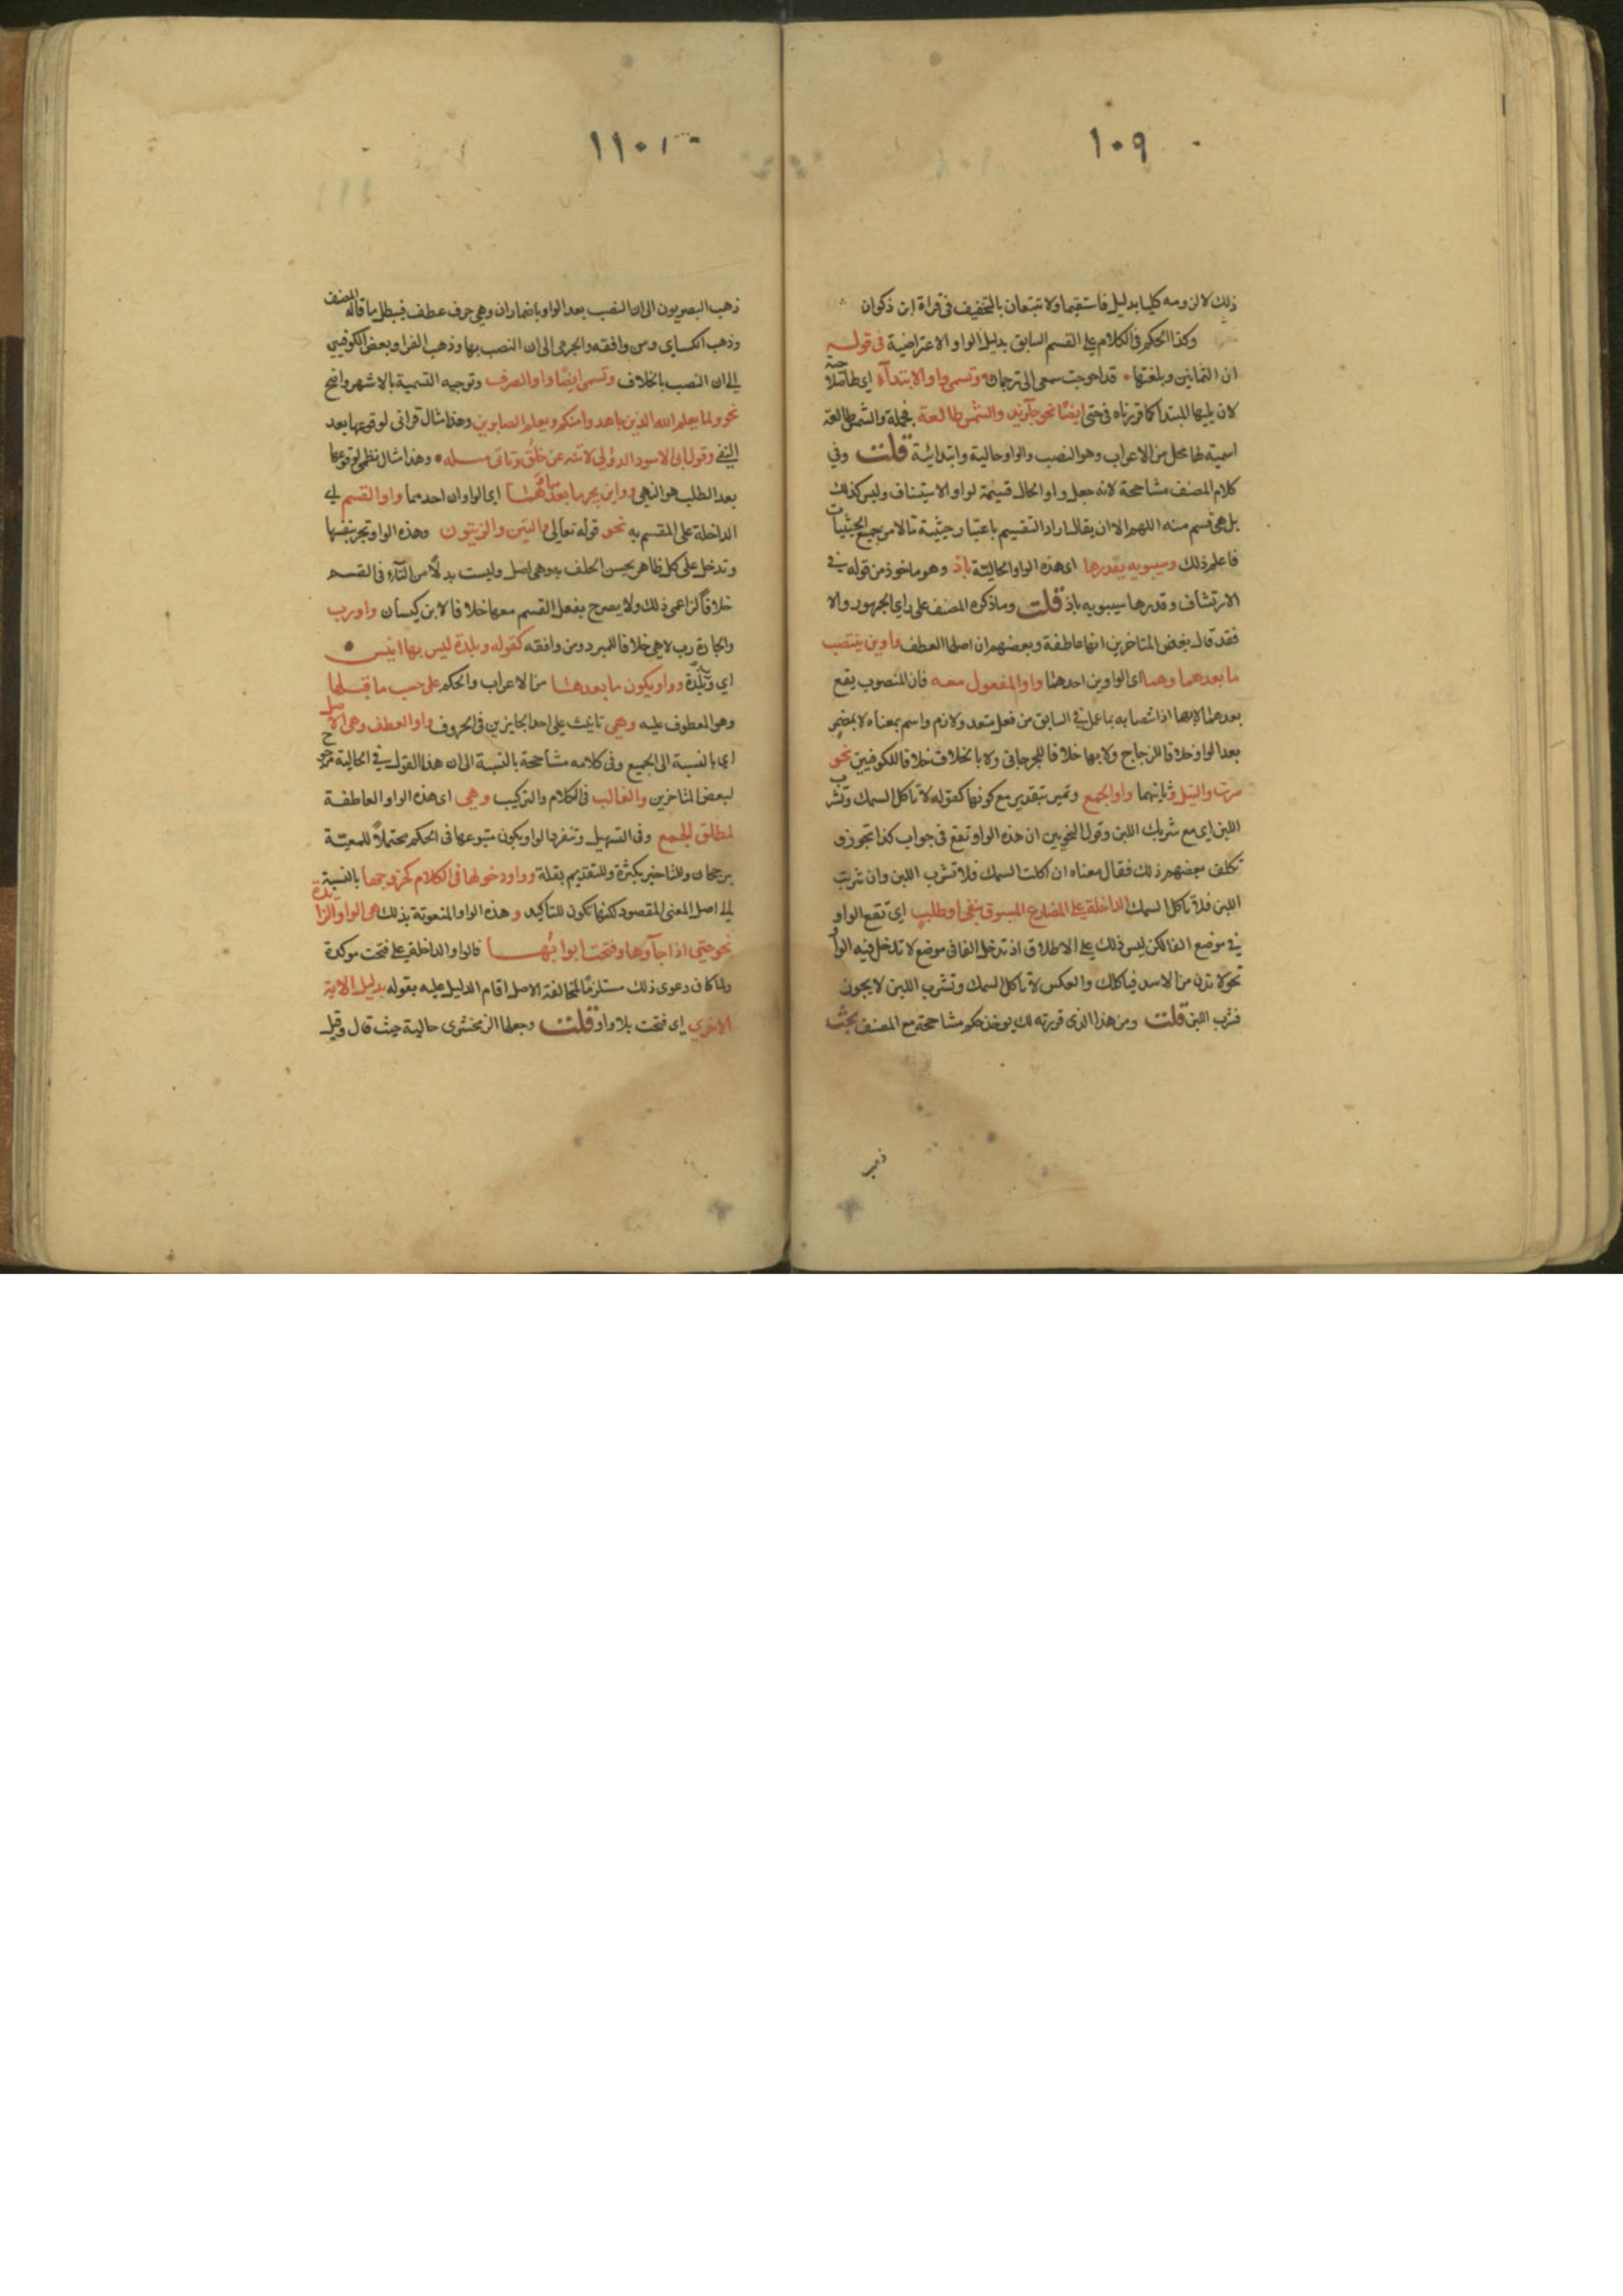 ١٠٩
ذلك لا لزومه كليا بدليل فاستقيما ولا تتبعان بالتخفيف في قراة ابن ذكوان
وكذا الحكم في الكلام على القسم السابق بدليل الواو الاعتراضية في قوله
ان الثمانين وبلغتها قد احوجت سمعي الى ترجمان وتسمى واو الابتدآء اي
لان يليها المبتدا كما قررناه في حتى ايضا نحو جآ زيد والشمس طالعة فجملة والشمس طالعة
اسمية لها محل من الاعراب وهو النصب والواو حالية وابتدائية قلت وفي
كلام المصنف مشاححة لانه جعل واو الحال قسيمة لواو الاستيناف وليس كذلك
بل هي قسم منه اللهم الا ان يقال اراد التقسيم باعتبار حيثية ما لا من جميع الحيثيات
فاعلم ذلك وسيبويه يقدرها اي هذه الواو الحالية باذ وهو ماخوذ من قوله في
الارتشاف وقدرها سيبويه باذ قلت وما ذكره المصنف على راي الجمهور والا
فقد قال بعض المتاخرين انها عاطفة وبعضهم ان اصلها العطف واوين ينتصب
ما بعدهما وهما اي الواوين احدهما واو المفعول معه فان المنصوب يقع
بعدها لا بها اذ انتصابه بما عمل في السابق من فعل متعد ولازم واسم بمعناه لا بمضمر
بعد الواو خلافا للزجاج ولا بها خلافا للجرجاني ولا بالخلاف خلافا للكوفيين نحو
سرت والنيل وثانيهما واو الجمع وتميز بتقدير مع كونها كقوله لا تاكل السمك وتشرب
اللبن اي مع شربك اللبن وقول النحويين ان هذه الواو تقع في جواب كذا تجوز و
تكلف بعضهم ذلك فقال معناه ان اكلت السمك فلا تشرب اللبن وان شربت
اللبن فلا تاكل السمك الداخلة على المضارع المسبوق بنفي او طلب اي تقع الواو
في موضع الفا لكن ليس ذلك على الاطلاق اذ تدخل الفا في موضع لا تدخل فيه الواو
نحو لا تدن من الاسد فياكلك والعكس لا تاكل السمك وتشرب اللبن لا يجوز
فتشرب اللبن قلت ومن هذا الذي قررته لك يوخذ حكم مشاححة مع المصنف بحيث
ذهب
١١٠
ذهب البصريون الى ان النصب بعد الواو باضمار ان وهي حرف عطف فيبطل ما قاله المصنف
وذهب الكساي ومن وافقه والجرمي الى ان النصب بها وذهب الفرا وبعض الكوفيين
الى ان النصب بالخلاف وتسمى ايضا واو الصرف وتوجيه التسمية بالاشهر واضح
نحو ولما يعلم الله الذين جاهدوا منكم ويعلم الصابرين وهذا مثال قراني لوقوعها بعد
النفي وقول ابي الاسود الدؤلي لا تنه عن خلق وتاتي مثله وهذا مثال نظمي لوقوعها
بعد الطلب هو النهي وواين يجر ما بعدهما اي الواوان احدهما واو القسم اي
الداخلة على المقسم به نحو قوله تعالى والتين والزيتون وهذه الواو تجر بنفسها
وتدخل على كل ظاهر يحسن الحلف به وهي اصل وليست بدلا من التآء في القسم
خلافا لزاعمي ذلك ولا يصرح بفعل القسم معها خلافا لابن كيسان واو رب
والجارة رب لا هي خلافا للمبرد ومن وافقه كقوله وبلدة ليس بها انيس
اي وبلدة وواو يكون ما بعدها من الاعراب والحكم على حسب ما قبلها
وهو المعطوف عليه وهي تانيث على احد الجايزين في الحروف واو العطف وهي الاصل
اي بالنسبة الى الجميع وفي كلامه مشاححة بالنسبة الى ان هذا القول في الحالية
لبعض المتاخرين والغالب في الكلام والتركيب وهي اي هذه الواو العاطفة
لمطلق الجمع وفي التسهيل وتنفرد الواو بكون متبوعها في الحكم محتملا للمعية
برجحان وللتاخير بكثرة وللتقديم بقلة وواو دخولها في الكلام كخروجها بالنسبة
الى اصل المعنى المقصود لكنها تكون للتاكيد وهذه الواو المنعوتة بذلك هي الواو الزايدة
نحو حتى اذا جآوها وفتحت ابوابها فالواو الداخلة على فتحت موكدة
ولما كان دعوى ذلك مستلزما لمخالفة الاصل اقام الدليل عليه بقوله بدليل الاية
الاخرى اي فتحت بلا واو قلت وجعلها الزمخشري حالية حيث قال وقيل